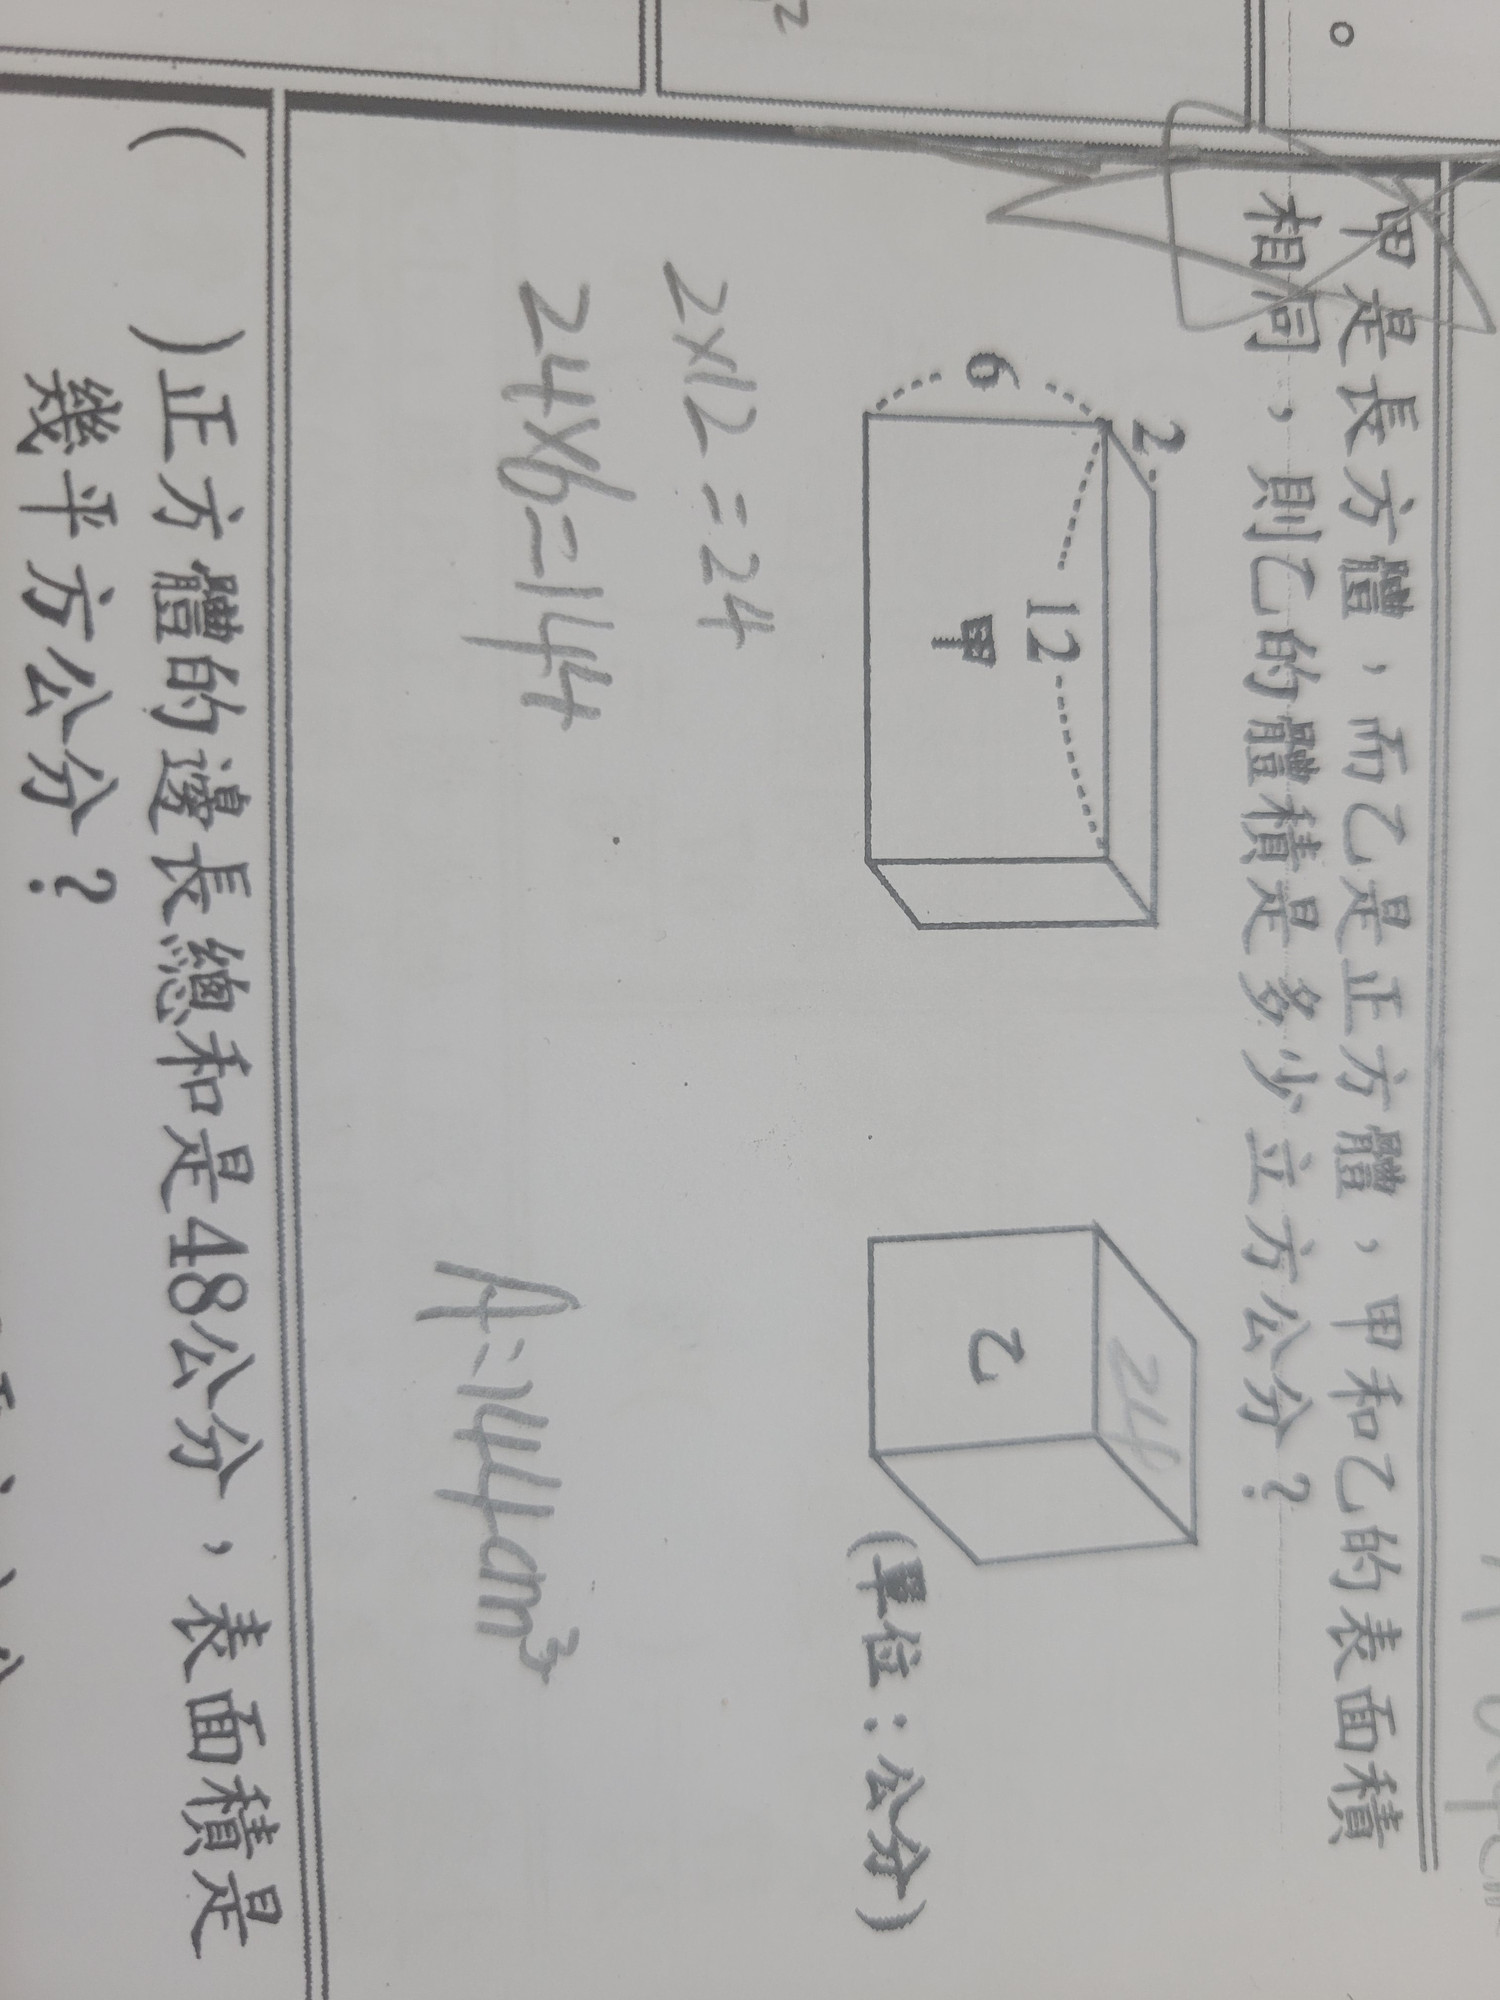 甲是長方體，而乙是正方體，甲和乙的表面積
相同，則乙的體積是多少立方公分？
2
6
12
甲
24
乙
(單位：公分)
2×12=24
24×6=144
A:144cm³
(　　)正方體的邊長總和是48公分，表面積是
幾平方公分？